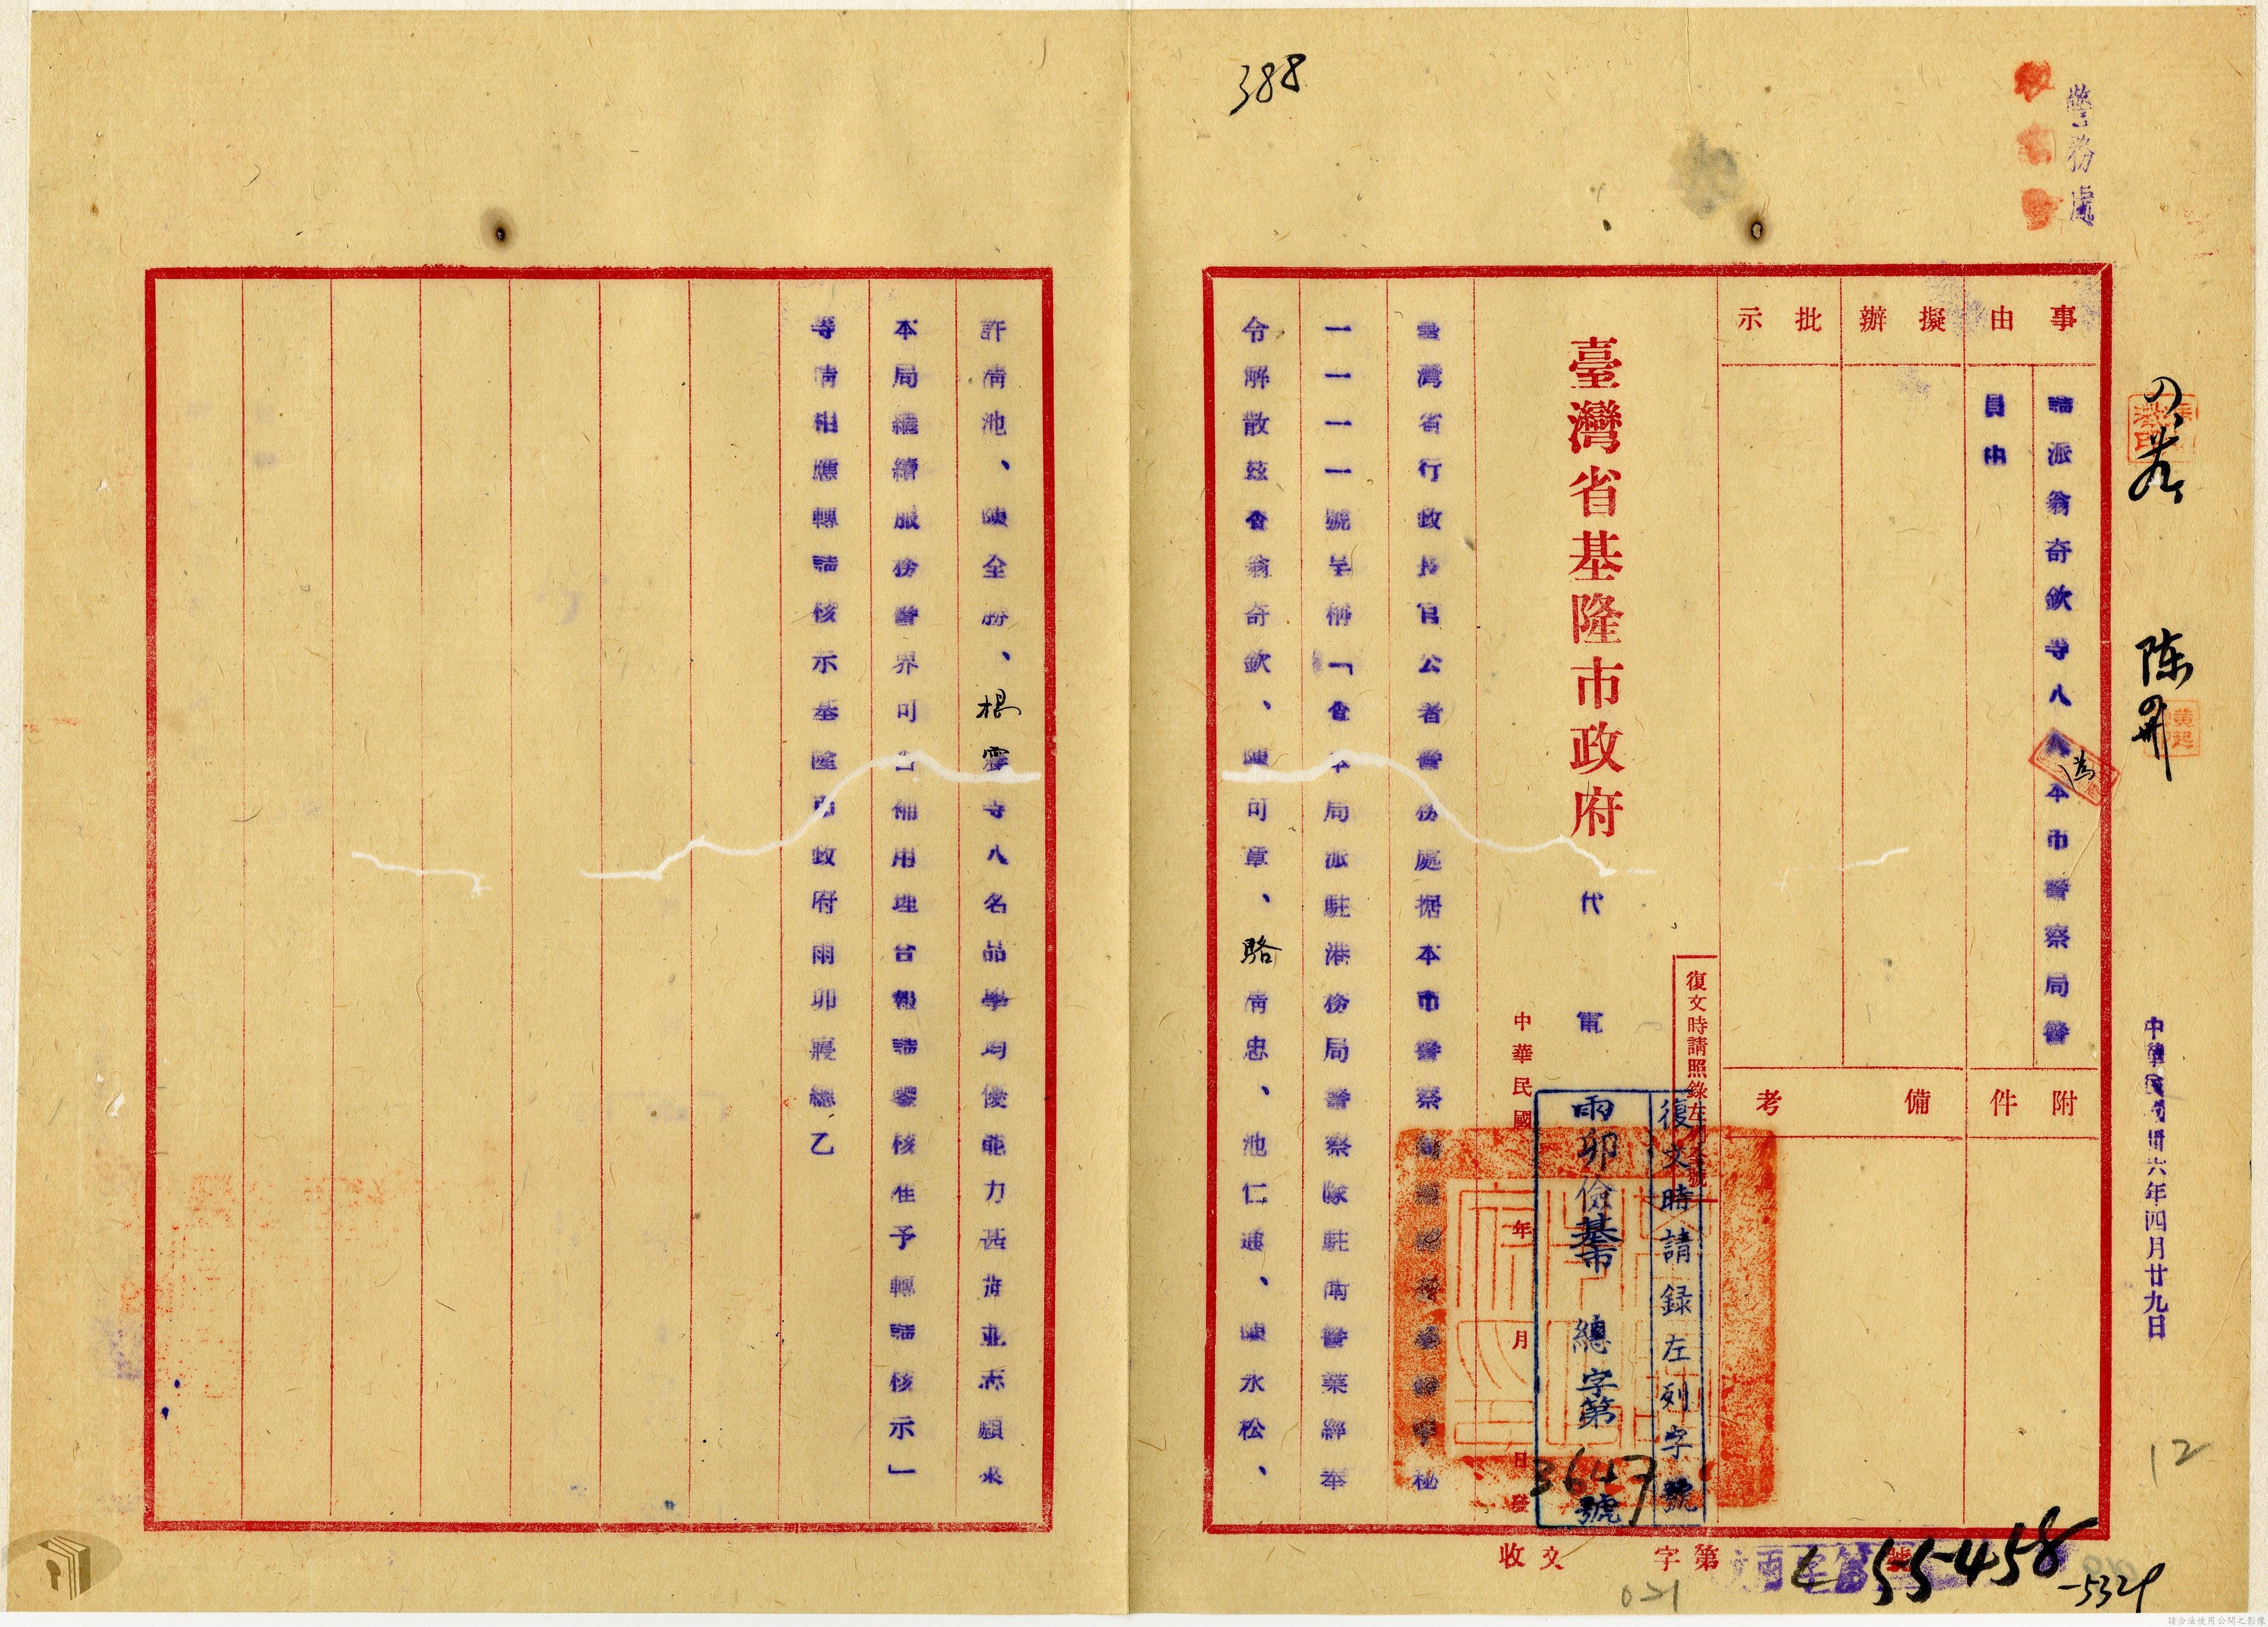 388
警務處
中華民國卅六年四月廿九日
陈
12
事由
請派翁奇欽等八
為本市警察局警
員由
擬辦
批示
附件
備考
復文時請照錄左
臺灣省基隆市政府
代電
中華民國 年 月 日發
復文時請録左列字號
雨卯儉基市總字第3647號
臺灣省行政長官公署警務處据本市警察
秘
一一一一號呈稱「查本局派駐港務局警察隊駐衛警業經奉
令解散茲查翁奇欽、陳可章、駱清忠、池仁連、陳永松、
收文 字第 號
55458
-5329
021
許清池、陳全勝、根
等八名品學均優能力甚 並志願來
本局繼續服務警界可
補用理合報請鑒核准予轉請核示」
等情相應轉請核示基隆市政府雨卯寢總乙
請合法使用公開之影像